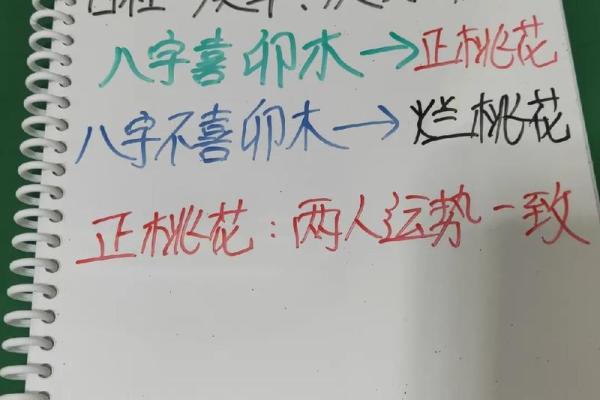 八字喜卯木→正桃花
八字不喜卯木→烂桃花
正桃花:两人运势一致